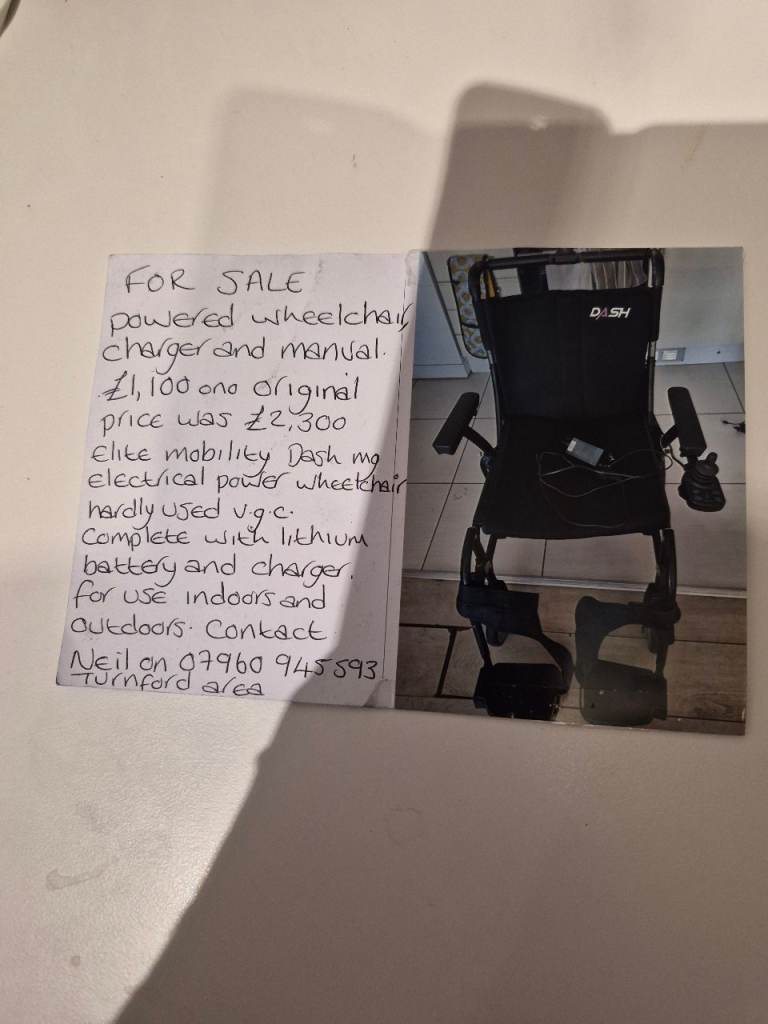 FOR SALE
powered wheelchair,
charger and manual.
£1,100 ono original
price was £2,300
Elite mobility Dash mg
electrical power wheelchair
hardly used v.g.c.
Complete with lithium
battery and charger.
for use indoors and
outdoors. Contact
Neil on 07960 945593
Turnford area
DASH